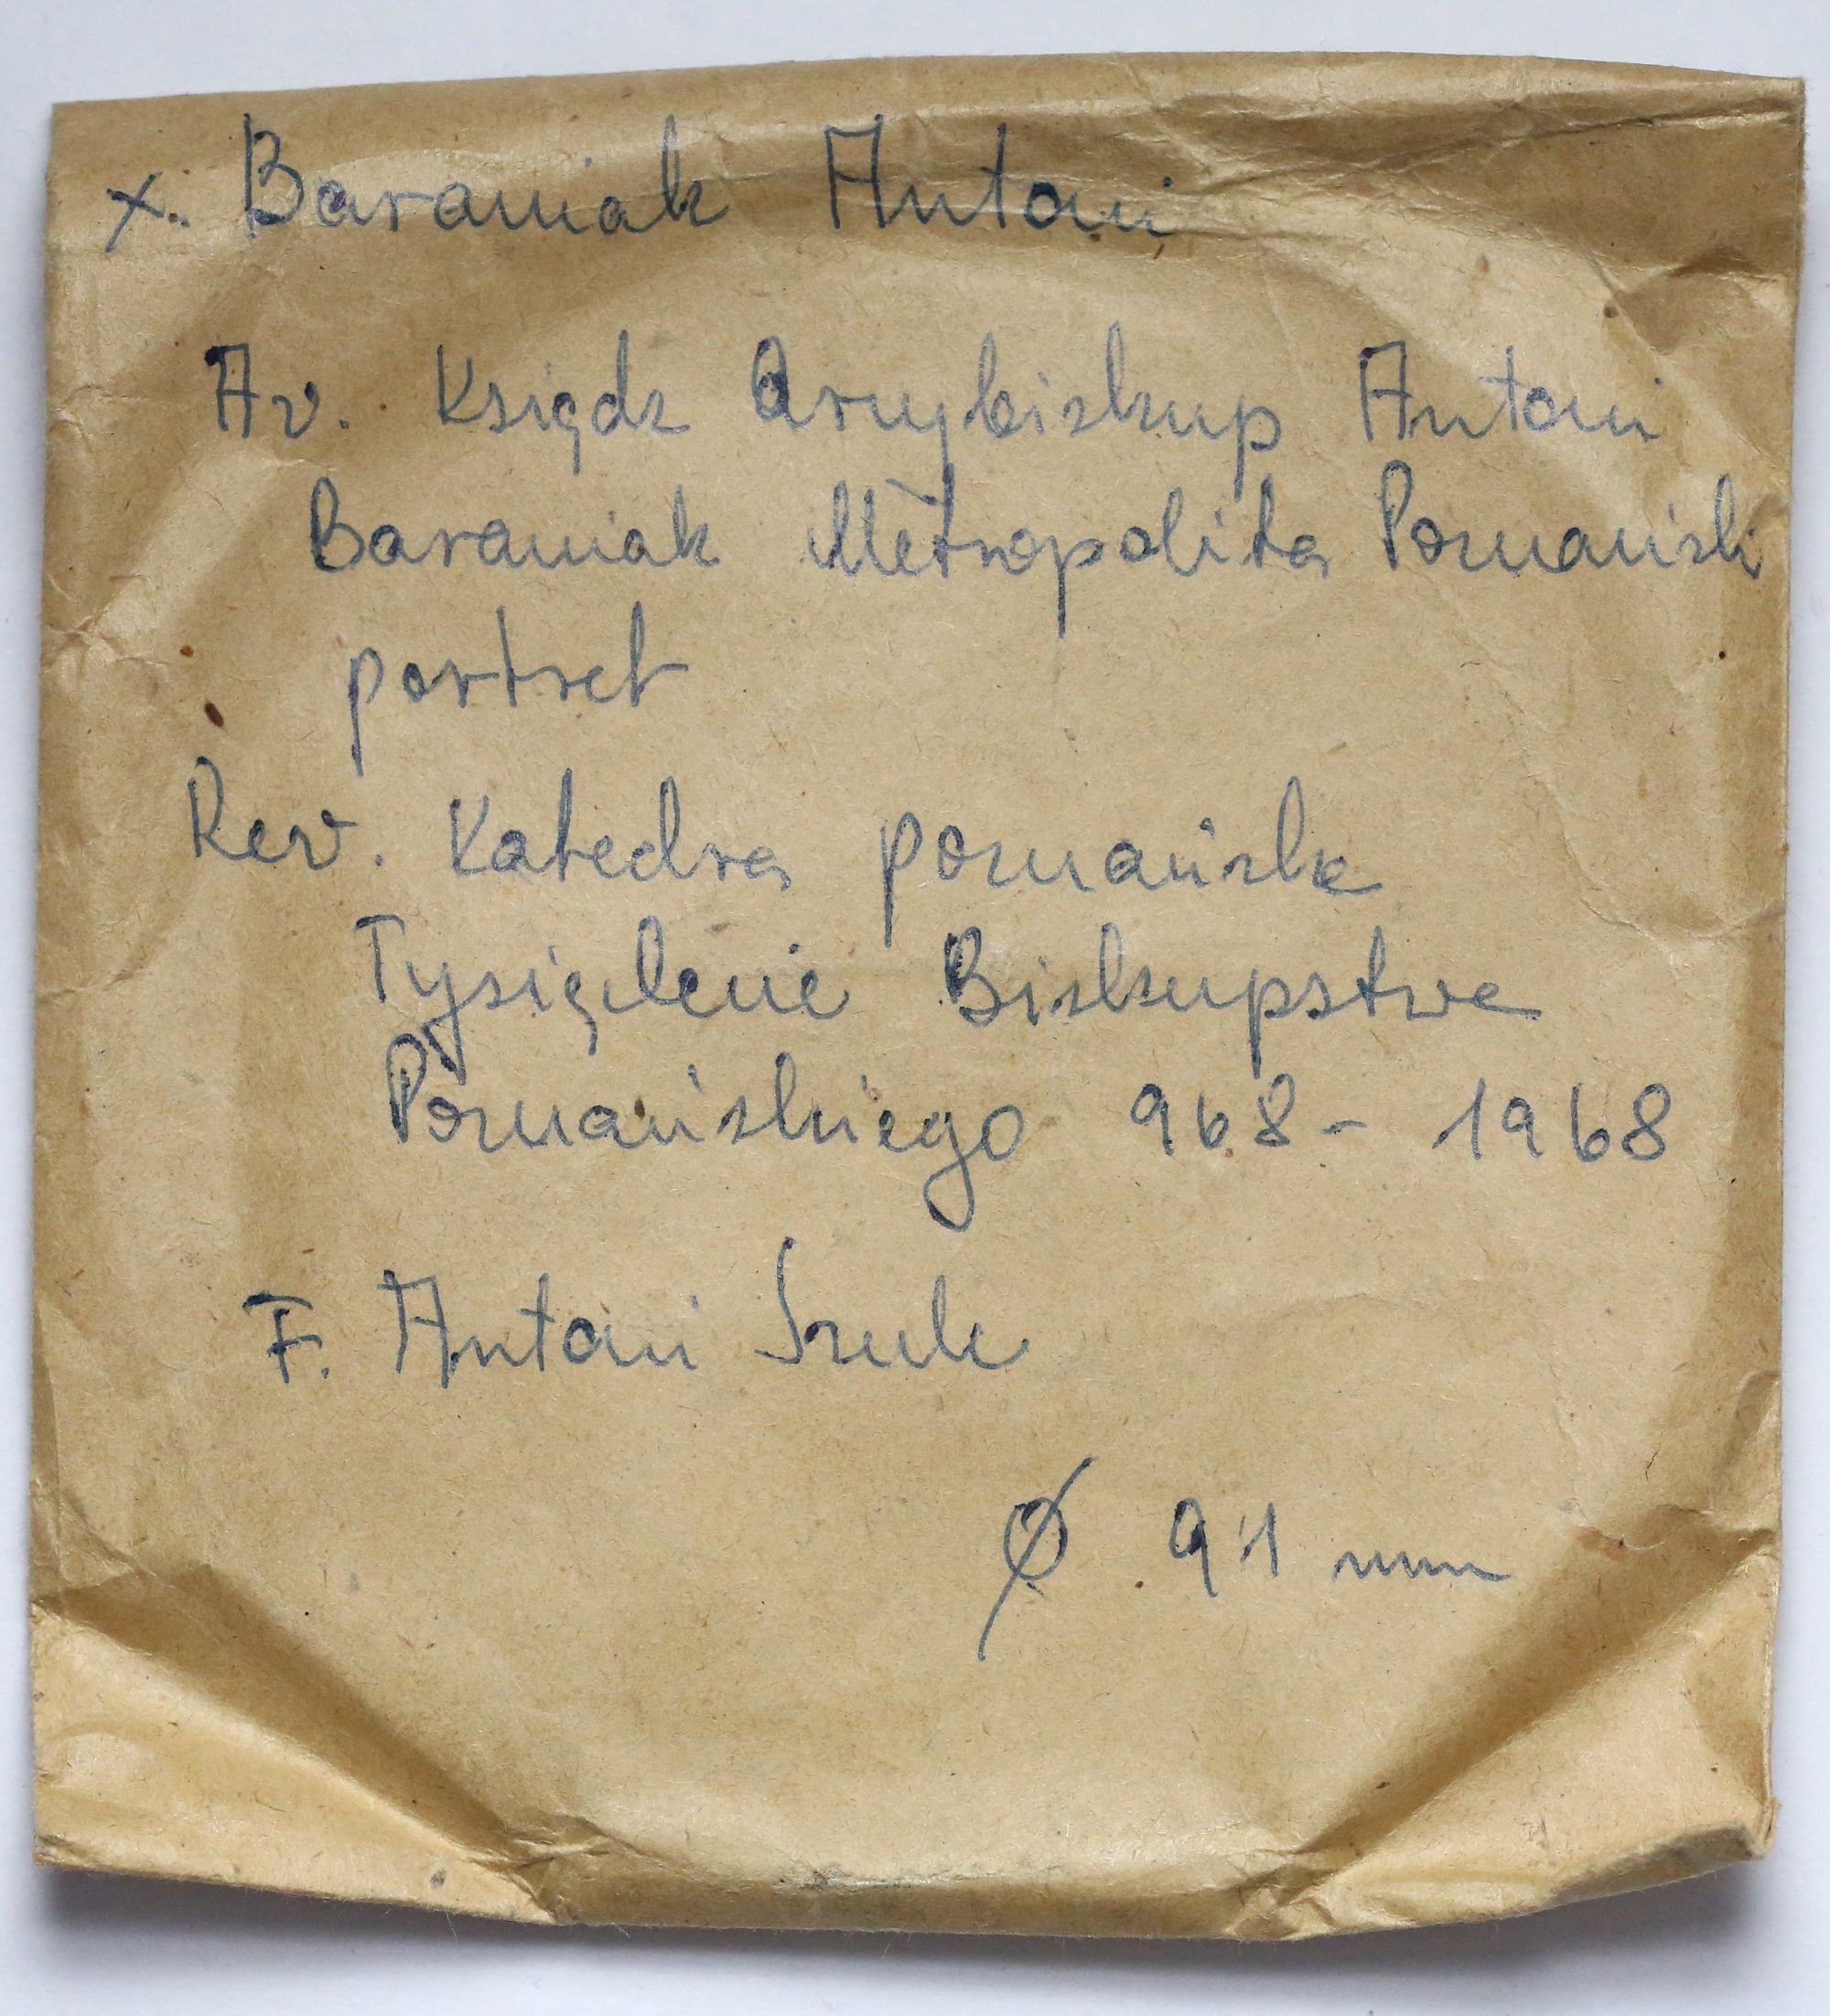 x. Baraniak Antoni
Av. Ksiądz Arcybiskup Antoni
Baraniak Metropolita Poznański
portret
Rev. Katedra poznańska
Tysiąclecie Biskupstwa
Poznańskiego 968 - 1968
F. Antoni Szulc
Ø 91 mm